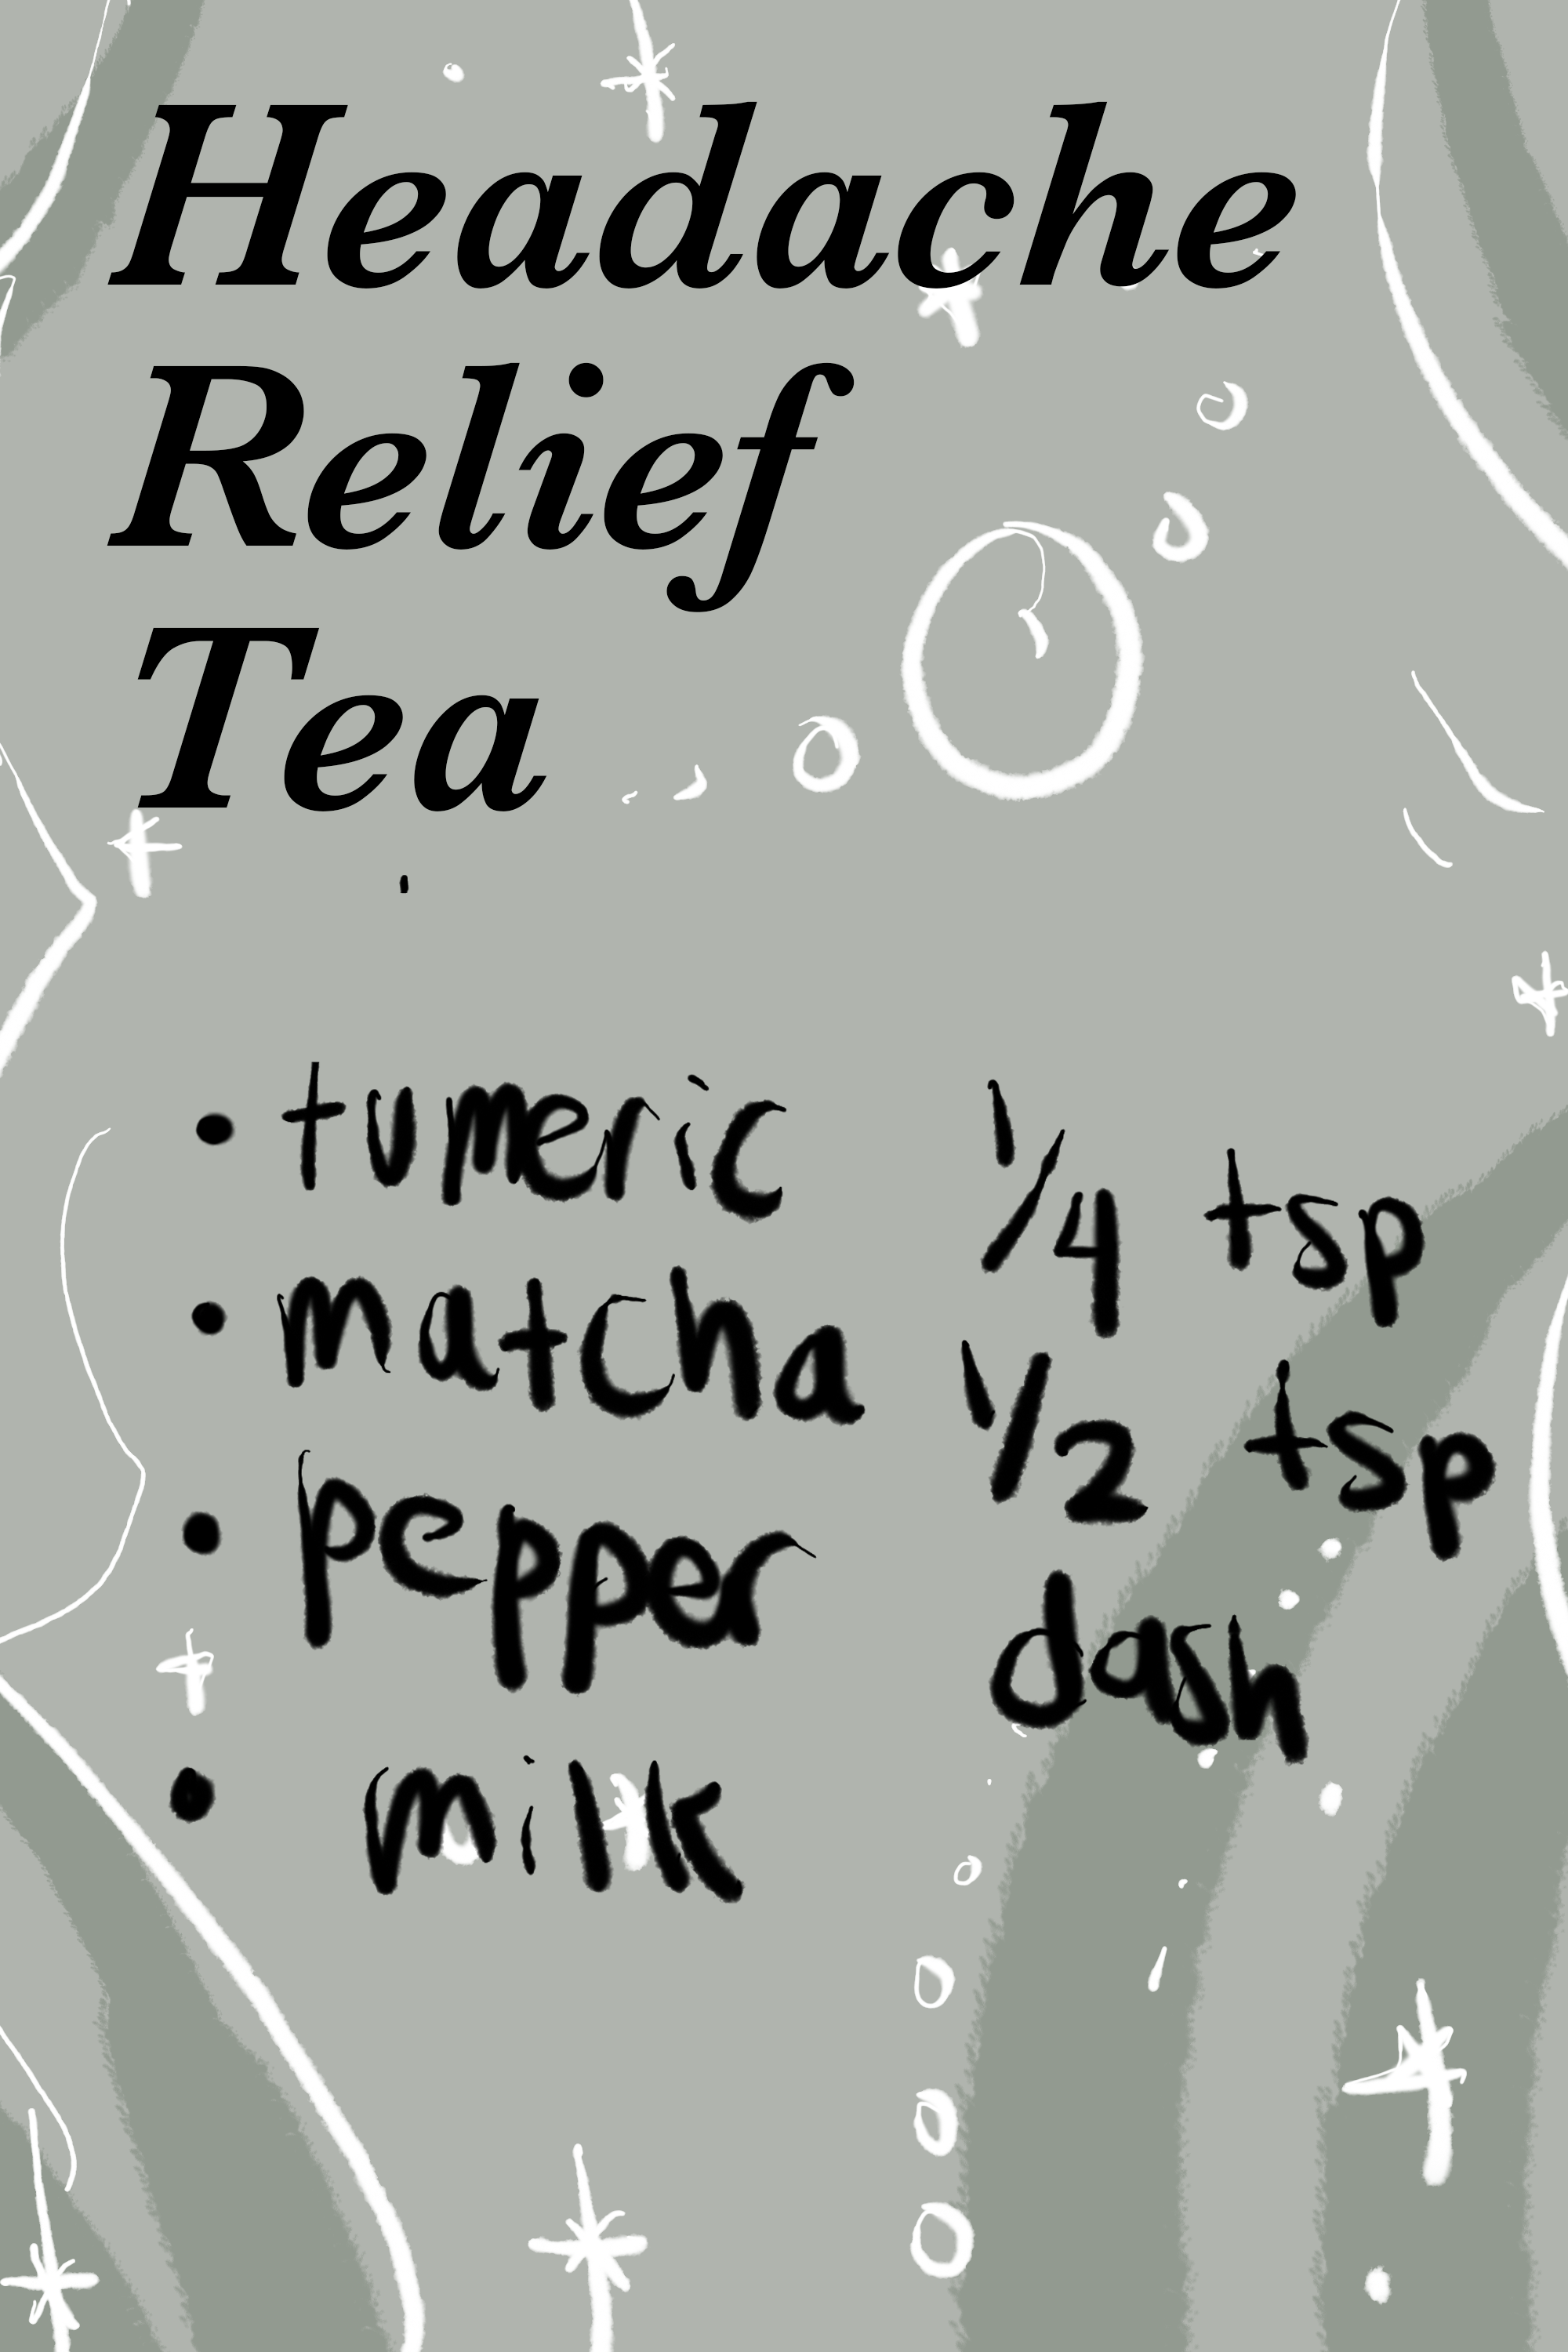 Headache
Relief
Tea
• tumeric 1/4 tsp
• matcha 1/2 tsp
• pepper dash
• milk